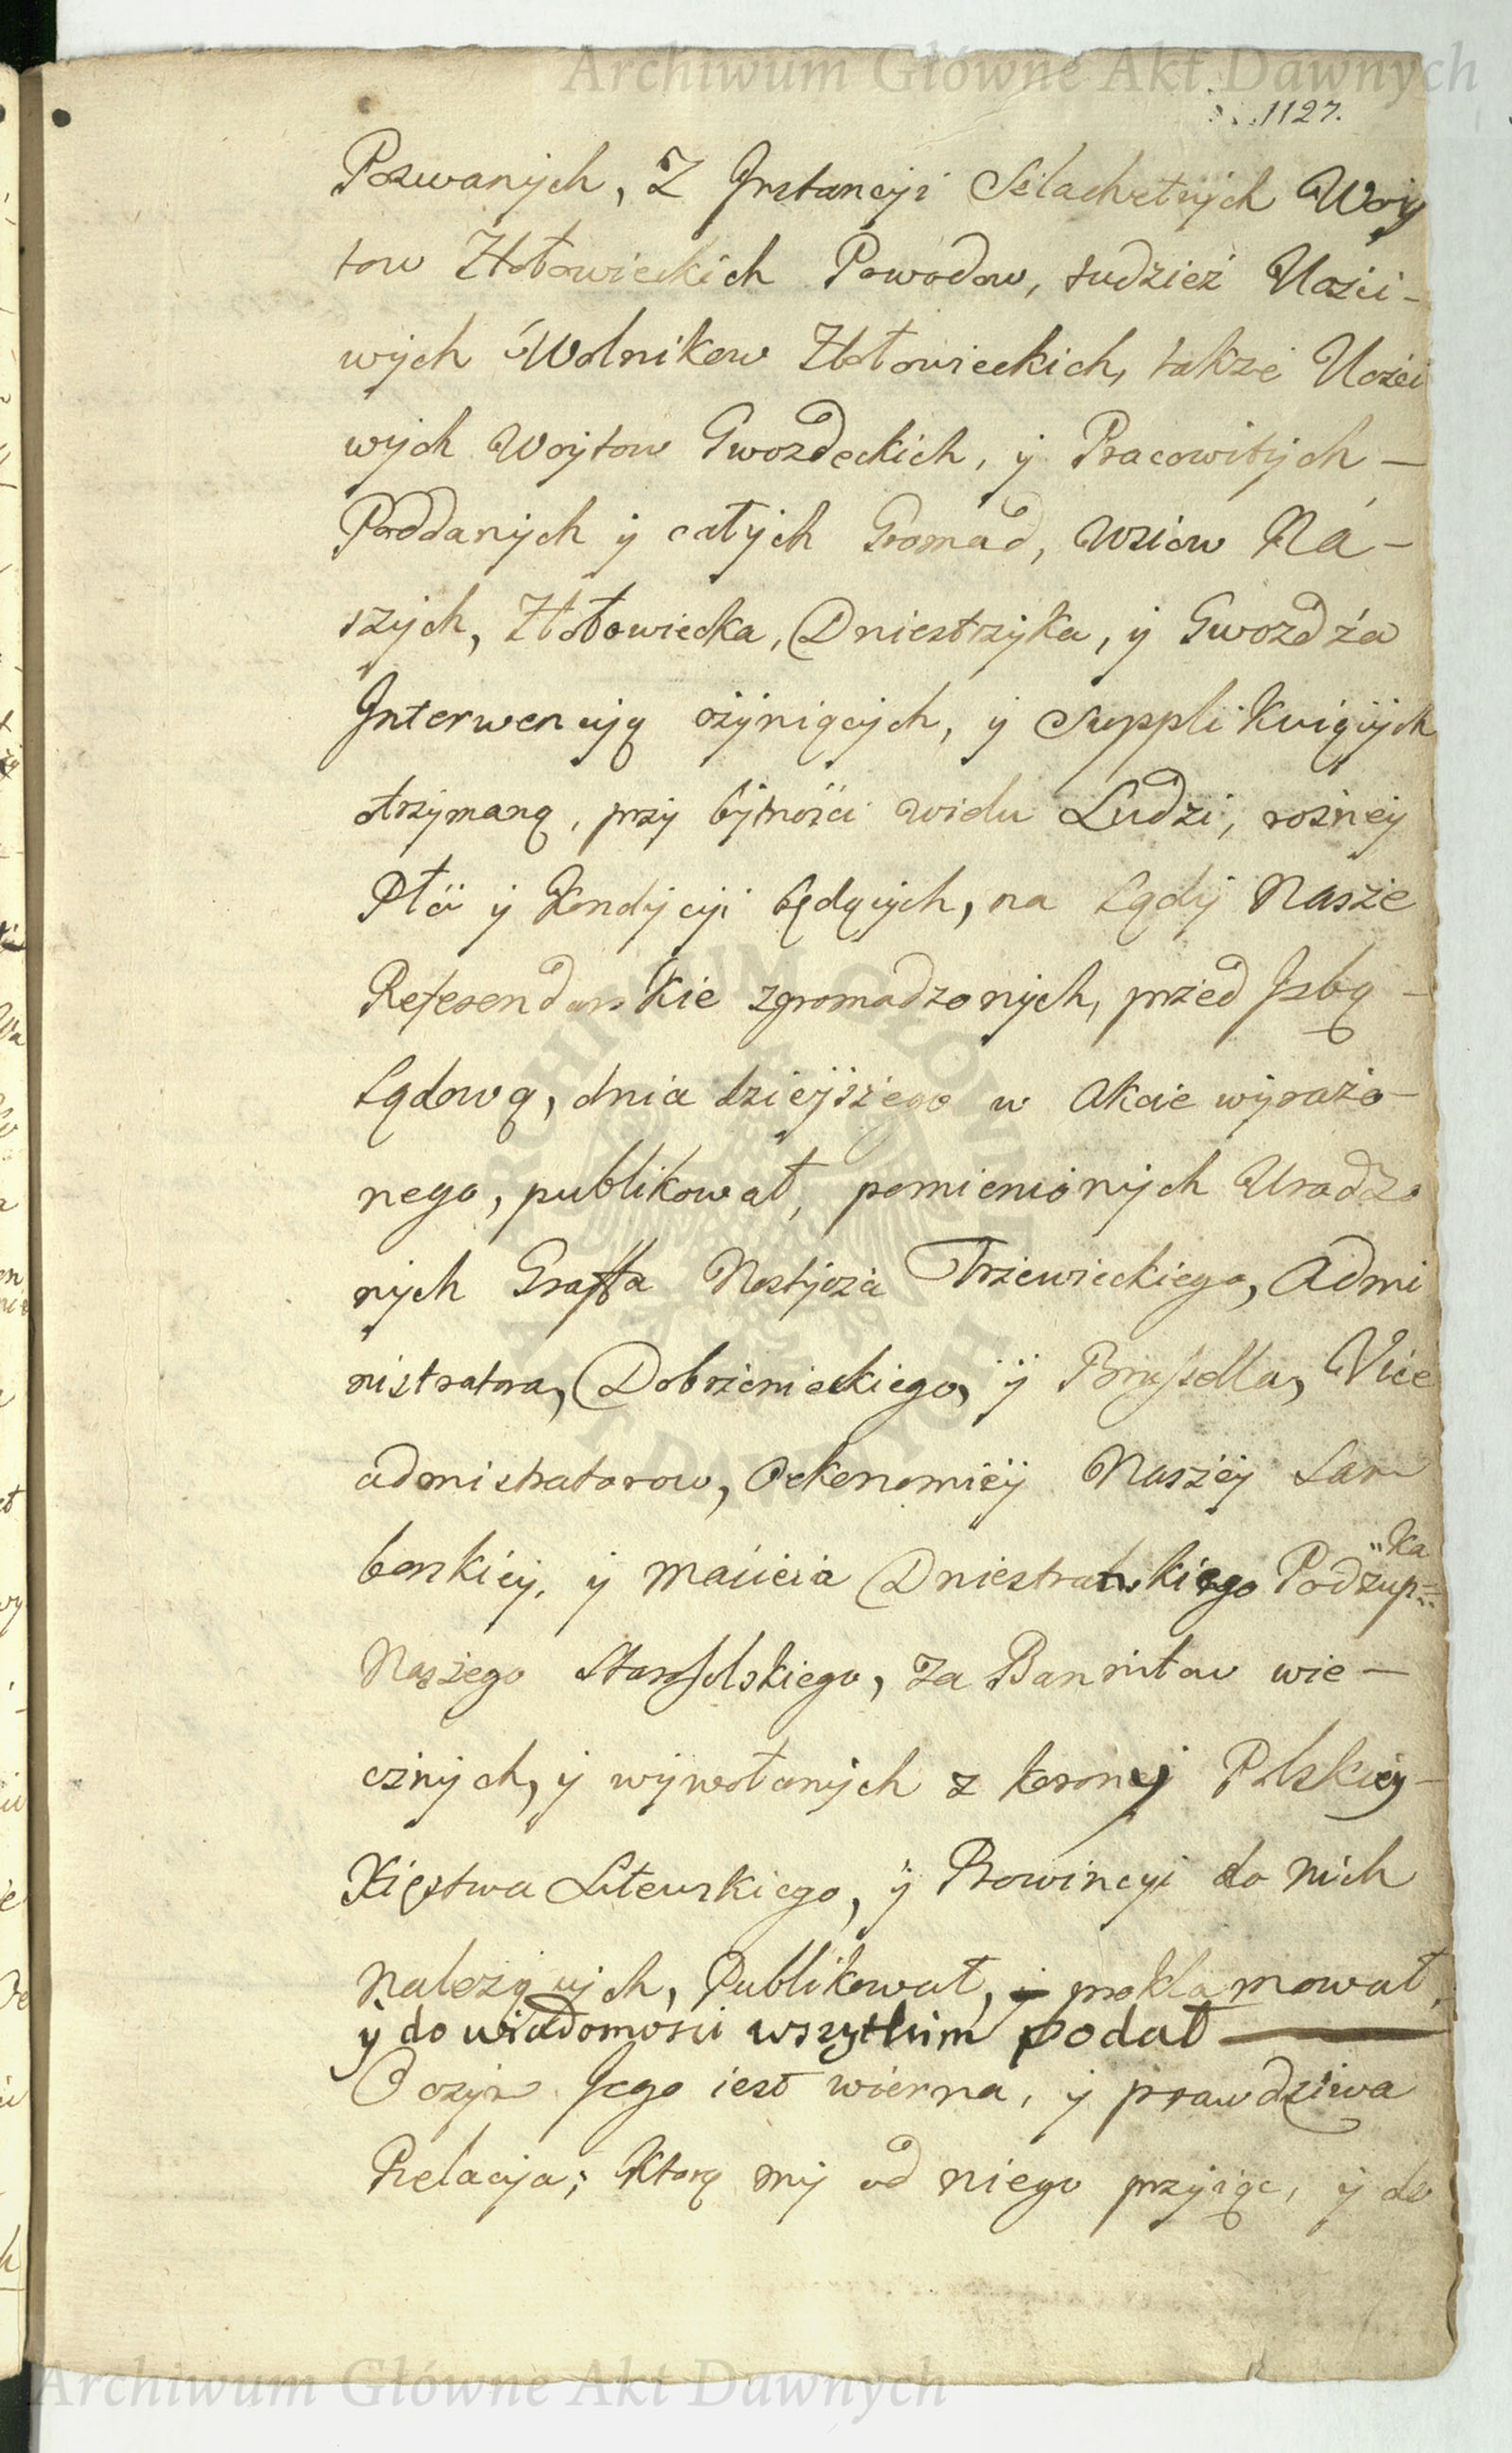 Archiwum Główne Akt Dawnych
1127.
Pozwanych, Z Jnstancyi Szlachetnych Woy
tow Złotowieckich Powodow, tudzież Uczci-
wych Wolnikow Złotowieckich, także Uczci
wych Woytow Gwozdeckich, y Pracowitych -
Poddanych y całych Gromad, Wsiow Na-
szych, Złotowiecka, Dniestrzyka, y Gwozdźa
Jnterwencyą czyniących, y Supplikuiących
otrzymaną, przy bytności wielu Ludzi, rożney
Płci y Kondycyi będących, na Sądy Nasze
Referendarskie zgromadzonych, przed Jzbą -
Sądową, dnia dzieyszego w Akcie wyrażo-
nego, publikował, pomienionych Urodzo
nych Graffa Nostycza Trzewieckiego, Admi
nistratora, Dobrzenieckiego, y Bryssella, Vice
admistratorow, Oekonomiey Naszey Sam
borskiey, y Macieia Dniestrańskiego Podżup-
ka
Naszego Starosolskiego, za Bannitow wie-
cznych, y wywołanych z Korony Polskiey -
Xięstwa Litewskiego, y Prowincyi do nich
Należących, Publikował, y proklamował,
y do wiadomosci wszytkim podał
O czym Jego iest wierna, y prawdziwa
Relacyia; Ktorą my od niego przyiąc, y do
ARCHIWUM GŁÓWNE AKT DAWNYCH
Archiwum Główne Akt Dawnych